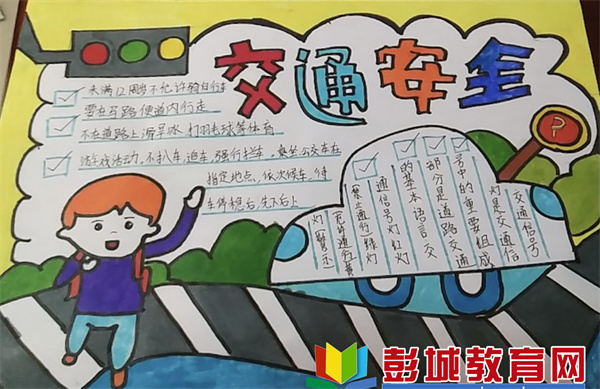 交通安全
未满12周岁不允许骑自行车
要在马路便道内行走
不在道路上滑旱冰、打羽毛球等体育
游戏活动,不扒车、追车、强行拦车,乘坐公交车在
指定地点,依次候车,待
车停稳后,先下后上
交通信号
灯是交通信
号中的重要组成
部分是道路交通
的基本语言交
通信号灯红灯
禁止通行绿灯
允许通行黄
灯警示
?
彭城教育网